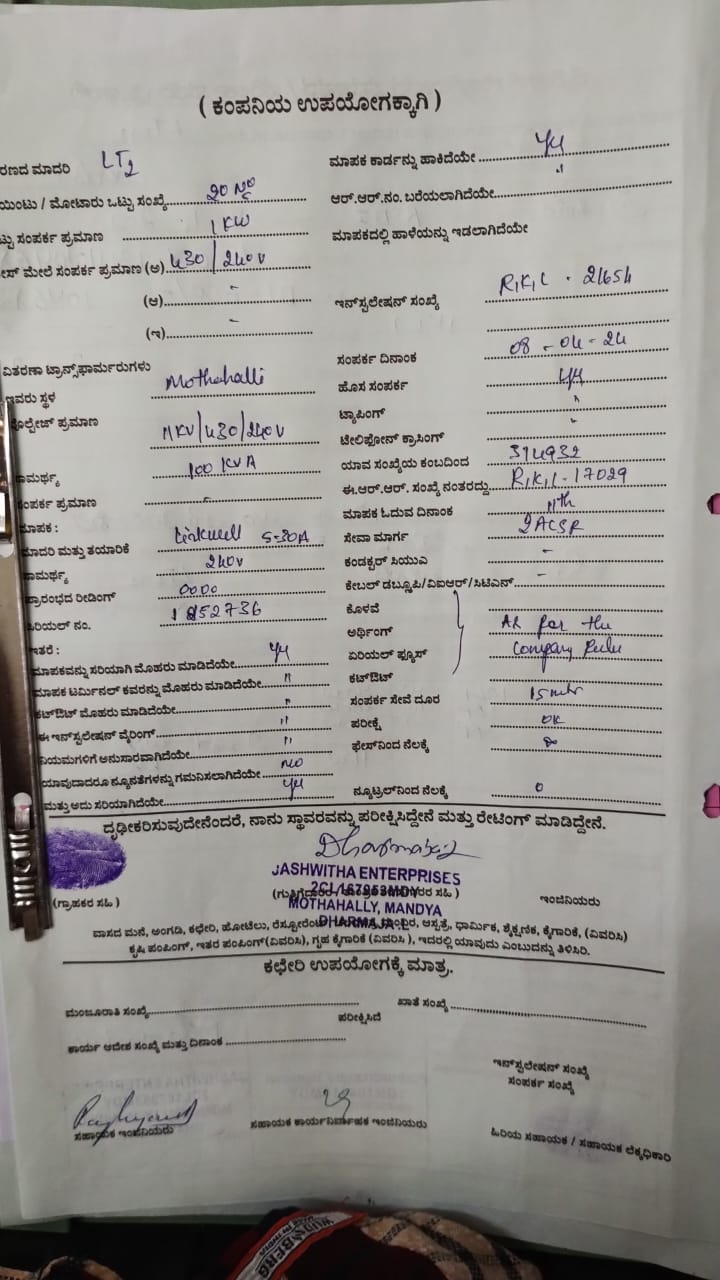 ( ಕಂಪನಿಯ ಉಪಯೋಗಕ್ಕಾಗಿ )
ರಣದ ಮಾದರಿ LT2
ಯಿಂಟು / ಮೋಟಾರು ಒಟ್ಟು ಸಂಖ್ಯೆ 20 No
ಟ್ಟು ಸಂಪರ್ಕ ಪ್ರಮಾಣ 1 KW
ೇಸ್ ಮೇಲೆ ಸಂಪರ್ಕ ಪ್ರಮಾಣ (ಅ) 430/240V
(ಆ) -
(ಇ) -
ವಿತರಣಾ ಟ್ರಾನ್ಸ್‌ಫಾರ್ಮರುಗಳು
ಇವರು ಸ್ಥಳ Mothahalli
ವೋಲ್ಟೇಜ್ ಪ್ರಮಾಣ 11KV/430/240V
ಸಾಮರ್ಥ್ಯ 100 KVA
ಸಂಪರ್ಕ ಪ್ರಮಾಣ -
ಮಾಪಕ :
ಮಾದರಿ ಮತ್ತು ತಯಾರಿಕೆ 5-30A
ಸಾಮರ್ಥ್ಯ 240V
ಪ್ರಾರಂಭದ ರೀಡಿಂಗ್ 0000
ಸಿರಿಯಲ್ ನಂ. 52736
ಇತರೆ :
ಮಾಪಕವನ್ನು ಸರಿಯಾಗಿ ಮೊಹರು ಮಾಡಿದೆಯೇ
ಮಾಪಕ ಟರ್ಮಿನಲ್ ಕವರನ್ನು ಮೊಹರು ಮಾಡಿದೆಯೇ "
ಕಟ್‌ಔಟ್ ಮೊಹರು ಮಾಡಿದೆಯೇ "
ಈ ಇನ್‌ಸ್ಟಲೇಷನ್ ವೈರಿಂಗ್ "
ನಿಯಮಗಳಿಗೆ ಅನುಸಾರವಾಗಿದೆಯೇ "
ಯಾವುದಾದರೂ ನ್ಯೂನತೆಗಳನ್ನು ಗಮನಿಸಲಾಗಿದೆಯೇ NO
ಮತ್ತು ಅದು ಸರಿಯಾಗಿದೆಯೇ
ಮಾಪಕ ಕಾರ್ಡನ್ನು ಹಾಕಿದೆಯೇ
ಆರ್.ಆರ್.ನಂ. ಬರೆಯಲಾಗಿದೆಯೇ "
ಮಾಪಕದಲ್ಲಿ ಹಾಳೆಯನ್ನು ಇಡಲಾಗಿದೆಯೇ
ಇನ್‌ಸ್ಟಲೇಷನ್ ಸಂಖ್ಯೆ 21654
ಸಂಪರ್ಕ ದಿನಾಂಕ 08-04-24
ಹೊಸ ಸಂಪರ್ಕ
ಟ್ಯಾಪಿಂಗ್ "
ಟೆಲಿಫೋನ್ ಕ್ರಾಸಿಂಗ್ -
ಯಾವ ಸಂಖ್ಯೆಯ ಕಂಬದಿಂದ 314932
ಈ.ಆರ್.ಆರ್. ಸಂಖ್ಯೆ ನಂತರದ್ದು 17029
ಮಾಪಕ ಓದುವ ದಿನಾಂಕ 11th
ಸೇವಾ ಮಾರ್ಗ 2ACSR
ಕಂಡಕ್ಟರ್ ಸಿಯುಎ -
ಕೇಬಲ್ ಡಬ್ಲ್ಯೂಪಿ/ವಿಐಆರ್/ಸಿಟಿಎನ್ -
ಕೊಳವೆ
ಅರ್ಥಿಂಗ್ for the
ಏರಿಯಲ್ ಫ್ಯೂಸ್ Company
ಕಟ್‌ಔಟ್
ಸಂಪರ್ಕ ಸೇವೆ ದೂರ 15 mtr
ಪರೀಕ್ಷೆ OK
ಫೇಸ್‌ನಿಂದ ನೆಲಕ್ಕೆ ∞
ನ್ಯೂಟ್ರಲ್‌ನಿಂದ ನೆಲಕ್ಕೆ 0
ದೃಢೀಕರಿಸುವುದೇನೆಂದರೆ, ನಾನು ಸ್ಥಾವರವನ್ನು ಪರೀಕ್ಷಿಸಿದ್ದೇನೆ ಮತ್ತು ರೇಟಿಂಗ್ ಮಾಡಿದ್ದೇನೆ.
JASHWITHA ENTERPRISES
2CL/167953MDY
MOTHAHALLY, MANDYA
DHARMAJA.L
(ಗ್ರಾಹಕರ ಸಹಿ )
ಇಂಜಿನಿಯರು
ವಾಸದ ಮನೆ, ಅಂಗಡಿ, ಕಛೇರಿ, ಹೋಟೆಲು, ಆಸ್ಪತ್ರೆ, ಧಾರ್ಮಿಕ, ಶೈಕ್ಷಣಿಕ, ಕೈಗಾರಿಕೆ, (ವಿವರಿಸಿ)
ಕೃಷಿ ಪಂಪಿಂಗ್, ಇತರ ಪಂಪಿಂಗ್(ವಿವರಿಸಿ), ಗೃಹ ಕೈಗಾರಿಕೆ (ವಿವರಿಸಿ ), ಇದರಲ್ಲಿ ಯಾವುದು ಎಂಬುದನ್ನು ತಿಳಿಸಿರಿ.
ಕಛೇರಿ ಉಪಯೋಗಕ್ಕೆ ಮಾತ್ರ.
ಮಂಜೂರಾತಿ ಸಂಖ್ಯೆ ಖಾತೆ ಸಂಖ್ಯೆ
ಪರೀಕ್ಷಿಸಿದೆ
ಕಾರ್ಯ ಆದೇಶ ಸಂಖ್ಯೆ ಮತ್ತು ದಿನಾಂಕ
ಇನ್‌ಸ್ಟಲೇಷನ್ ಸಂಖ್ಯೆ
ಸಂಪರ್ಕ ಸಂಖ್ಯೆ
ಸಹಾಯಕ ಇಂಜಿನಿಯರು
ಸಹಾಯಕ ಕಾರ್ಯನಿರ್ವಾಹಕ ಇಂಜಿನಿಯರು
ಹಿರಿಯ ಸಹಾಯಕ / ಸಹಾಯಕ ಲೆಕ್ಕಾಧಿಕಾರಿ